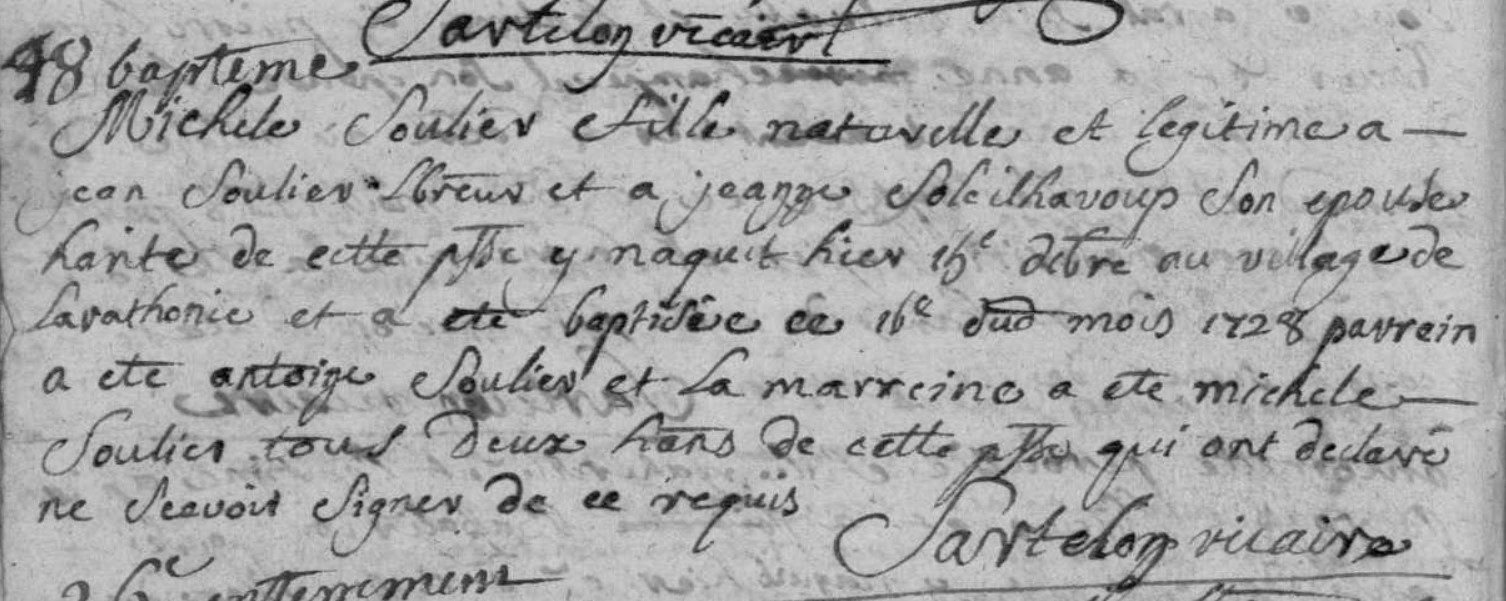 Sartelon vicaire
48 bapteme
Michele Soulier fille naturelle et legitime a
jean Soulier lbreur et a jeanne Soleilhavoup Son epouse
hante de cette psse y naquit hier 15e debre au village de
Lavathonie et a ete baptisée ce 16e dud mois 1728 parrein
a ete antoine Soulier et La marreine a ete michele
Soulier tous deux hans de cette psse qui ont declaré
ne Scavoir Signer de ce requis
Sartelon vicaire
enterrement